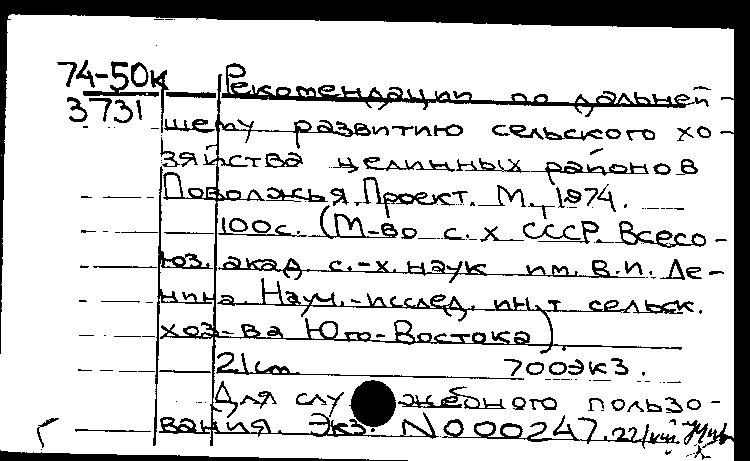 74-50к Рекомендации по дальней-
3731 шему развитию сельского хо-
зяйства целинных районов
Поволжья. Проект. М., 1974.
100с. (М-во с. х СССР. Всесо-
юз. акад с.-х. наук им. В.И. Ле-
нина. Науч.-исслед. ин-т сельск.
хоз-ва Юго-Востока).
21cm. 700экз.
Для служебного пользо-
вания. Экз. N000247.